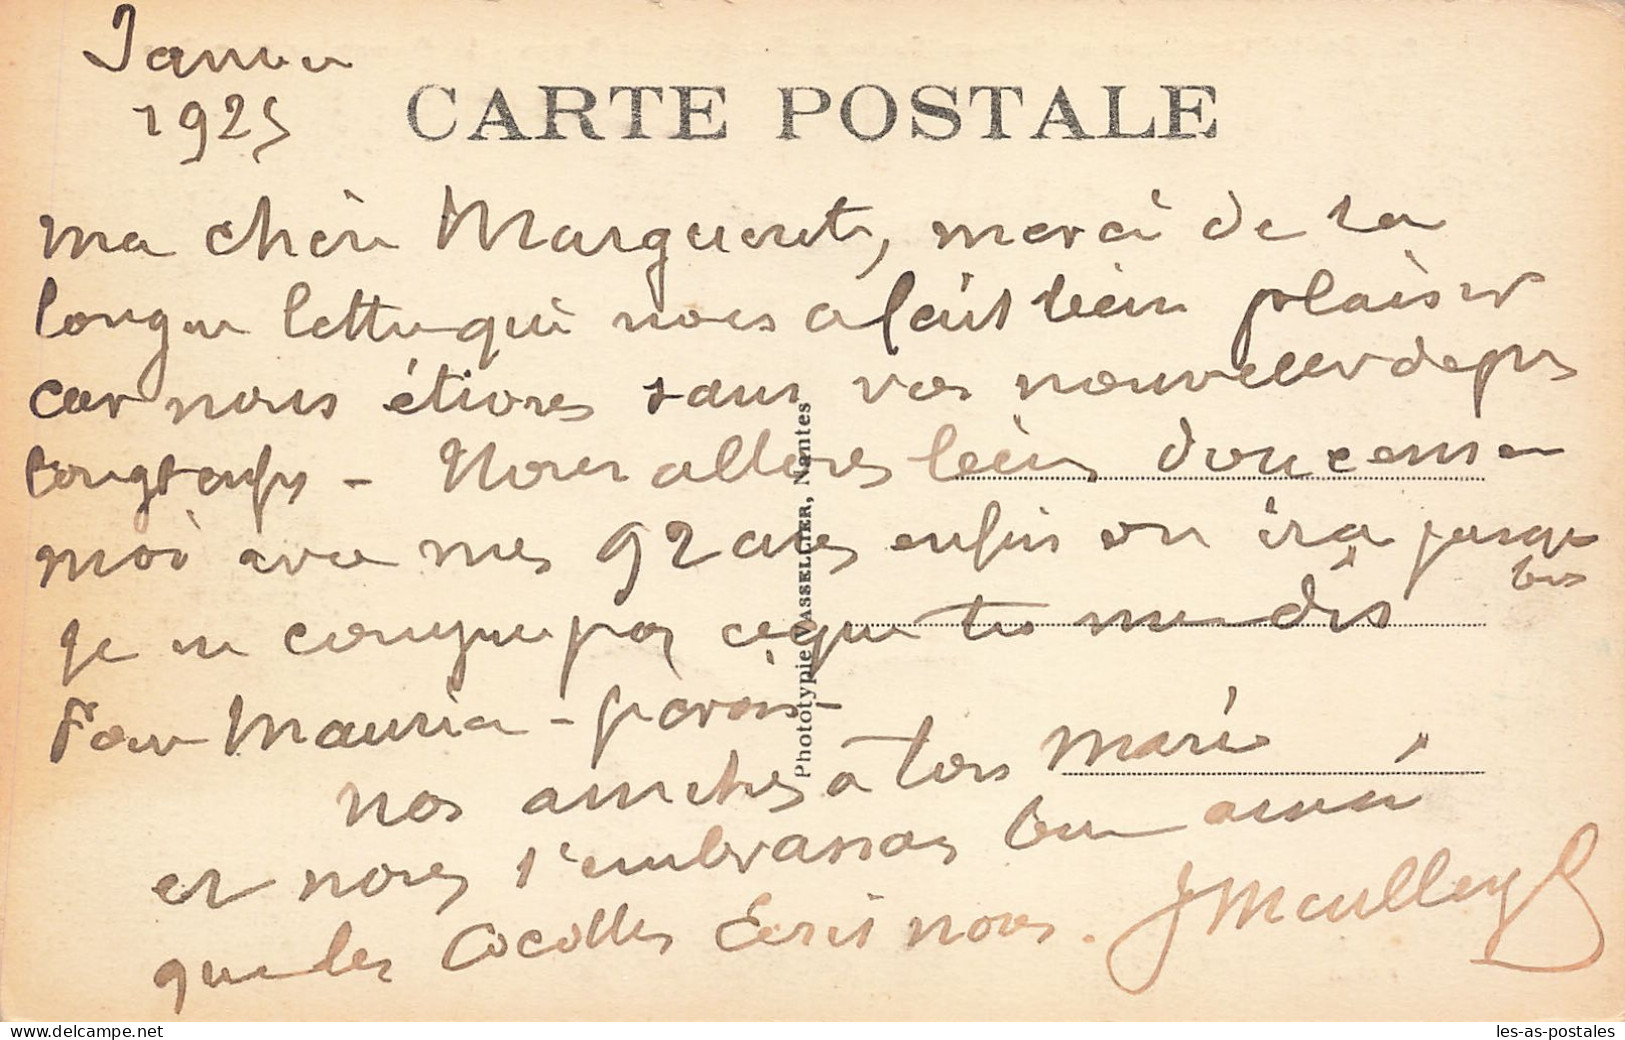 Janvier
1925
CARTE POSTALE
ma chère Marguerite, merci de ta
longue lettre qui nous a fait bien plaisir
car nous étions sans vos nouvelles depuis
longtemps - Nous allons bien doucement
moi avec mes 92 ans enfin on ira jusqu'
je ne comprend pas ce que tu me dis
Pour Maurice -
nos amitiés à ton Mari
et nous t'embrassons bien ainsi
que les Cocottes Ecris nous. J Meulley
Phototypie VASSELLIER, Nantes
www.delcampe.net
les-as-postales